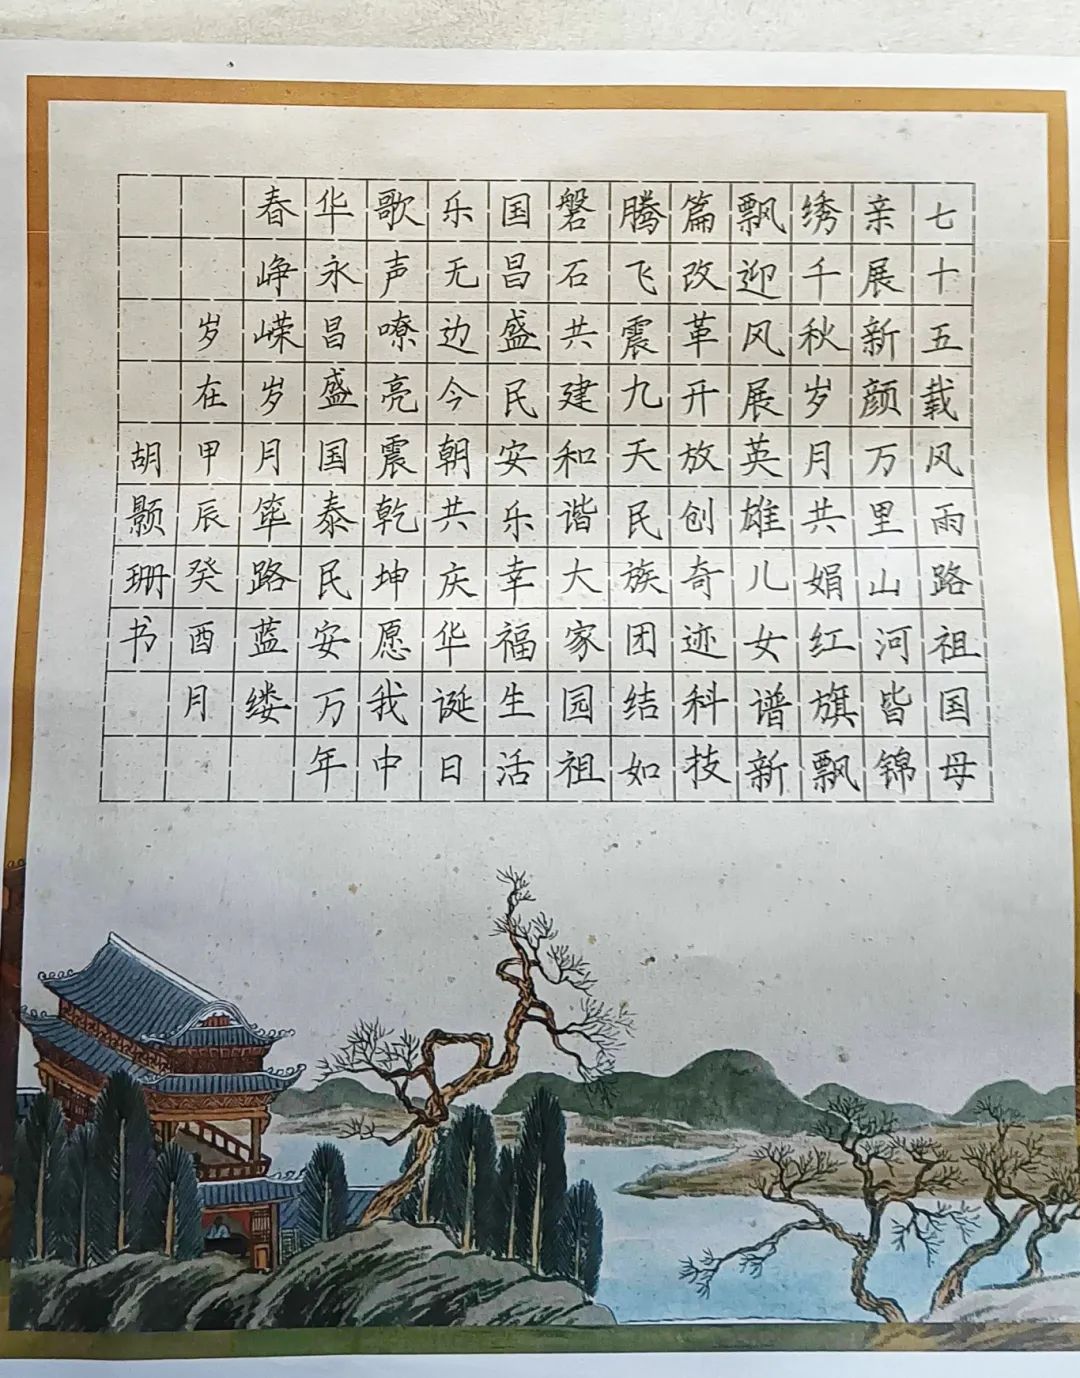 七十五载风雨路祖国母
亲展新颜万里山河皆锦
绣千秋岁月共娟红旗飘
飘迎风展英雄儿女谱新
篇改革开放创奇迹科技
腾飞震九天民族团结如
磐石共建和谐大家园祖
国昌盛民安乐幸福生活
乐无边今朝共庆华诞日
歌声嘹亮震乾坤愿我中
华永昌盛国泰民安万年
春峥嵘岁月筚路蓝缕
岁在甲辰癸酉月
胡颢珊书